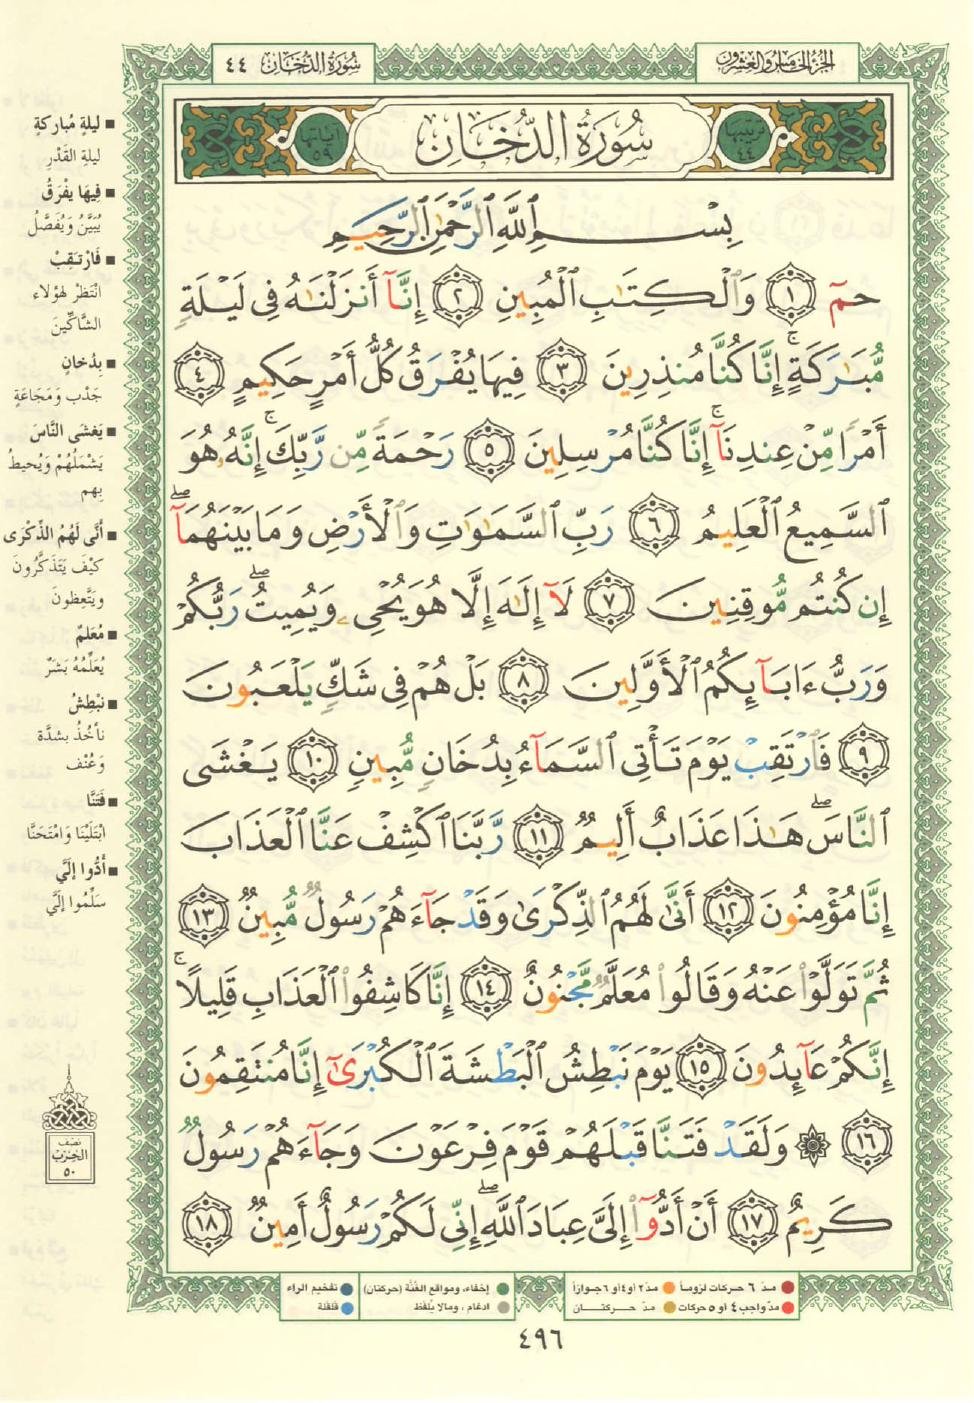 الجزء الخامس والعشرون
سورة الدخان ٤٤
ترتيبها ٤٤
سُورَةُ الدُّخَان
آياتها ٥٩
بِسْمِ ٱللَّهِ ٱلرَّحْمَٰنِ ٱلرَّحِيمِ
حمٓ ١ وَٱلْكِتَٰبِ ٱلْمُبِينِ ٢ إِنَّآ أَنزَلْنَٰهُ فِى لَيْلَةٍ
مُّبَٰرَكَةٍ ۚ إِنَّا كُنَّا مُنذِرِينَ ٣ فِيهَا يُفْرَقُ كُلُّ أَمْرٍ حَكِيمٍ ٤
أَمْرًا مِّنْ عِندِنَآ ۚ إِنَّا كُنَّا مُرْسِلِينَ ٥ رَحْمَةً مِّن رَّبِّكَ ۚ إِنَّهُۥ هُوَ
ٱلسَّمِيعُ ٱلْعَلِيمُ ٦ رَبِّ ٱلسَّمَٰوَٰتِ وَٱلْأَرْضِ وَمَا بَيْنَهُمَآ ۖ
إِن كُنتُم مُّوقِنِينَ ٧ لَآ إِلَٰهَ إِلَّا هُوَ يُحْىِۦ وَيُمِيتُ ۖ رَبُّكُمْ
وَرَبُّ ءَابَآئِكُمُ ٱلْأَوَّلِينَ ٨ بَلْ هُمْ فِى شَكٍّ يَلْعَبُونَ
٩ فَٱرْتَقِبْ يَوْمَ تَأْتِى ٱلسَّمَآءُ بِدُخَانٍ مُّبِينٍ ١٠ يَغْشَى
ٱلنَّاسَ ۖ هَٰذَا عَذَابٌ أَلِيمٌ ١١ رَّبَّنَا ٱكْشِفْ عَنَّا ٱلْعَذَابَ
إِنَّا مُؤْمِنُونَ ١٢ أَنَّىٰ لَهُمُ ٱلذِّكْرَىٰ وَقَدْ جَآءَهُمْ رَسُولٌ مُّبِينٌ ١٣
ثُمَّ تَوَلَّوْا۟ عَنْهُ وَقَالُوا۟ مُعَلَّمٌ مَّجْنُونٌ ١٤ إِنَّا كَاشِفُوا۟ ٱلْعَذَابِ قَلِيلًا ۚ
إِنَّكُمْ عَآئِدُونَ ١٥ يَوْمَ نَبْطِشُ ٱلْبَطْشَةَ ٱلْكُبْرَىٰٓ إِنَّا مُنتَقِمُونَ
١٦ ۞ وَلَقَدْ فَتَنَّا قَبْلَهُمْ قَوْمَ فِرْعَوْنَ وَجَآءَهُمْ رَسُولٌ
كَرِيمٌ ١٧ أَنْ أَدُّوٓا۟ إِلَىَّ عِبَادَ ٱللَّهِ ۖ إِنِّى لَكُمْ رَسُولٌ أَمِينٌ ١٨
ليلةٍ مُباركةٍ
ليلةِ القَدْرِ
فِيهَا يفْرَقُ
يُبَيَّنُ وَيُفَصَّلُ
فَارْتَقِبْ
انْتَظِرْ لهؤلاء
الشَّاكِّينَ
بِدُخانٍ
جَدْبٍ وَمَجَاعَةٍ
يَغشى النَّاسَ
يَشْمَلُهُمْ وَيُحيطُ
بِهِم
أَنَّى لَهُمُ الذِّكْرَى
كَيْفَ يَتَذَكَّرُونَ
ويَتَّعِظونَ
مُعَلمٌ
يُعَلِّمُهُ بَشَرٌ
نبْطِشُ
نأخُذُ بشدَّة
وَعُنْف
فَتَنَّا
ابْتَلَيْنَا وَامْتَحَنَّا
أَدُّوا إلَيَّ
سَلِّمُوا إلَيَّ
نصف
الحزب
٥٠
مدّ ٦ حركات لزوماً ● مدّ ٢ أو ٤ أو ٦ جوازاً
مدّ واجب ٤ أو ٥ حركات ● مدّ حركتان
إخفاء، ومواقع الغُنَّة (حركتان)
ادغام، ومالا يُلفظ
تفخيم الراء
قلقلة
٤٩٦